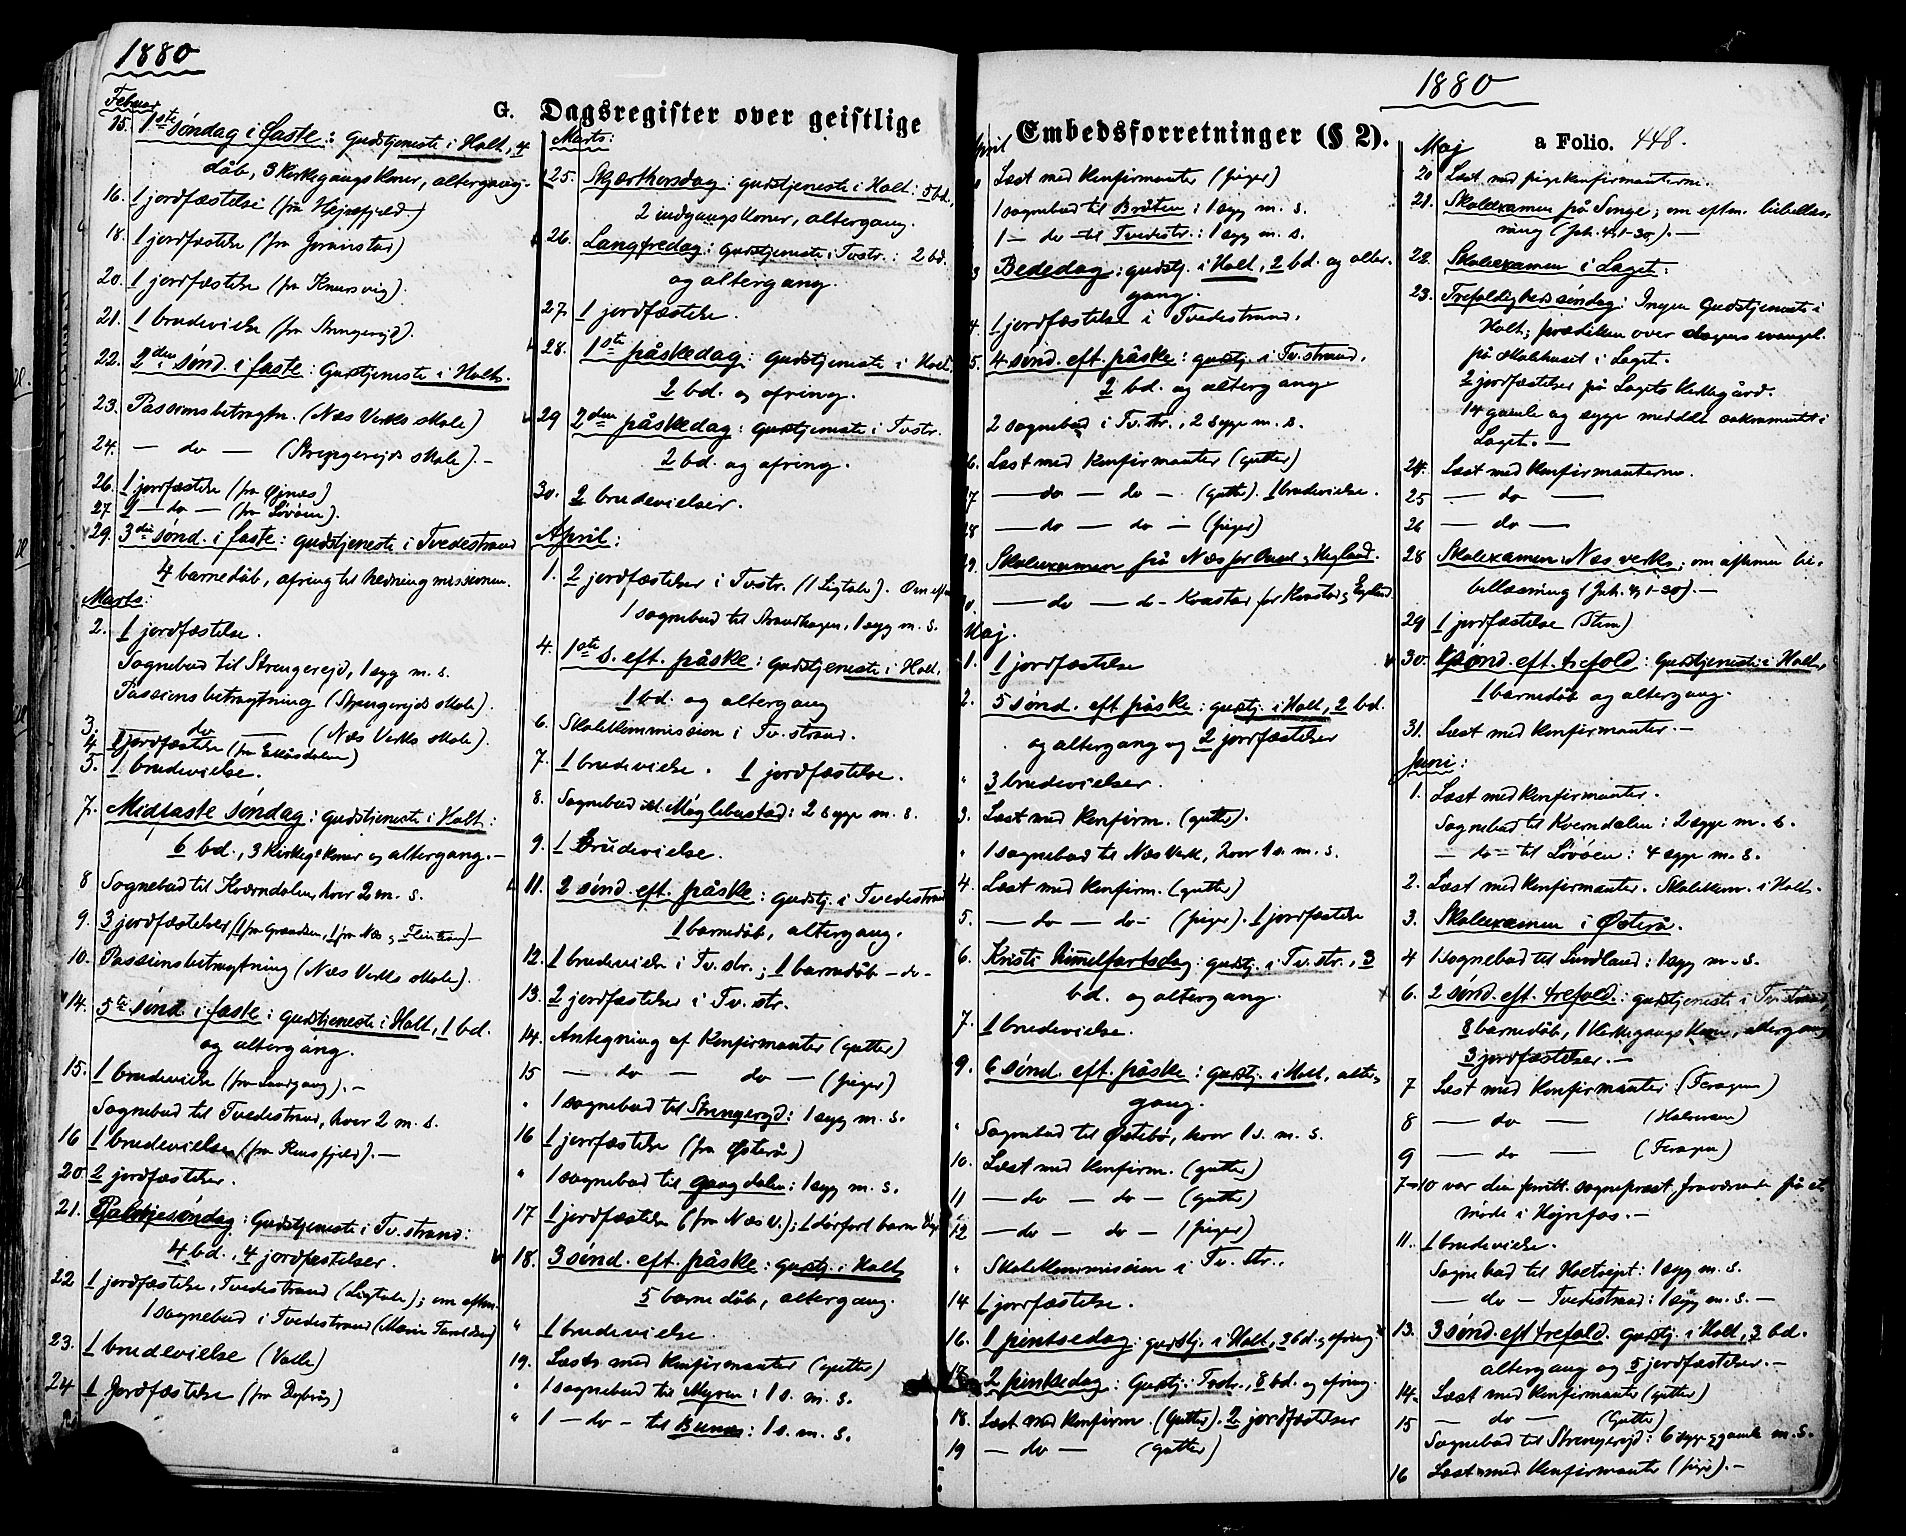 1880
G. Dagsregister over geistlige
Februar
15. 1ste søndag i faste: gudstjeneste i Holt, 4
dåb, 3 kirkegangskoner, altergang.
16. 1 jordfæstelse (fra Hejrefjeld)
18. 1 jordfæstelse (fra Joranstad)
20. 1 jordfæstelse (fra Knutsvig).
21. 1 brudevielse (fra Strengerejd).
22. 2den sønd. i faste: Gudstjeneste i Holt.
23. Passionsbetragtn. (Næs Verks skole)
24. — do — (Strengerejds skole). –
26. 1 jordfæstelse (fra Øjnæs)
27. 1 — do — (fra Løvåsen).
29. 3die sønd. i faste: gudstjeneste i Tvedestrand
4 barnedåb, ofring til hedningmissionen.
Marts:
2. 1 jordfæstelse.
Sognebud til Strengerejd, 1 syg m. s.
Passionsbetragtning (Strengerejds skole).
3. — do — (Næs Verks skole).
4. 1 jordfæstelse (fra Ekåsdalen)
5. 1 brudevielse.
7. Midfaste søndag: gudstjeneste i Holt:
6 bd., 3 kirkeg.koner og altergang. –
8 Sognebud til Kværndalen, hvor 2 m. s.
9. 3 jordfæstelser, (1 fra Grændsen, 1 fra Næs og
10. Passionsbetragtning (Næs Verks skole).
14. 5te sønd. i faste: gudstjeneste i Holt, 1 bd.
og altergang.
15. 1 brudevielse (fra Landgang). –
Sognebud til Tvedestrand, hvor 2 m. s.
16 1 brudevielse (fra Rensfjeld). –
20. 2 jordfæstelser.
21. Palmesøndag: Gudstjeneste i Tv.strand:
4 bd., 4 jordfæstelser.
22 1 jordfæstelse i Tvedestrand (Ligtale); om eftm.
1 sognebud i Tvedestrand (Marie Taraldsen)
23. 1 brudevielse (Valle)
24 1 Jordfæstelse (fra
Marts:
25. Skjærthorsdag: gudstjeneste i Holt: 5 bd.,
2 indgangskoner, altergang.
26. Langfredag: gudstjeneste i Tvstr.: 2 bd.
og altergang.
27. 1 jordfæstelse.
28. 1ste påskedag: gudstjeneste i Holt
2 bd. og ofring.
29 2den påskedag: gudstjeneste i Tvstr.
2 bd. og ofring.
30. 2 brudevielser.
April:
1. 2 jordfæstelser i Tvstr. (1 Ligtale). Om eftm
1 sognebud til Strandhagen, 1 syg m. s.
4. 1ste s. eft. påske: gudstjeneste i Holt.
1 bd. og altergang
6. Skolekommission i Tv.strand.
7. 1 brudevielse. 1 jordfæstelse.
8. Sognebud til Møglebustad: 2 syge m. s.
9. 1 Brudevielse.
11. 2 sønd. eft. påske: gudstj. i Tvedestrand
1 barnedåb, altergang.
12. 1 brudevielse i Tv. str.; 1 barnedåb – do –
13. 2 jordfæstelser i Tv. str.
14. Antegning af konfirmanter (gutter)
15 — do — do — (piger)
" 1 sognebud til Strengerejd: 1 syg m. s.
16 1 jordfæstelse (fra Østerå)
" 1 sognebud til Gangdalen: 1 syg m. s.
17 1 jordfæstelse (fra Næs V.); 1 dødfødt barn
18. 3 sønd. eft. påske: gudstj. i Holt
5 barnedåb, altergang.
" 1 brudevielse
19. Læst med konfirmanter (gutter)
" 1 sognebud til Myren: 1 s. m. s.
" 1 — do – til Bunæs: 1 s. m. s.
1880
Embedsforretninger (§ 2).
a Folio. 448.
April
Læst med konfirmanter (piger)
1 sognebud til Bråten: 1 syg m. s.
1 — do — til Tvedestr.: 1 syg m. s.
3 Bededag: gudstj. i Holt, 2 bd. og alter-
gang.
4. 1 jordfæstelse i Tvedestrand.
5. 4 sønd. eft. påske: gudstj. i Tv.strand.
2 bd. og altergang
2 sognebud i Tv. str., 2 syge m. s.
6. Læst med konfirmanter (gutter)
27 — do — do — (gutter). 1 brudevielse.
28 — do — do — (piger)
29. Skoleexamen på Næs for Onæs og Vegland.
30. — do — do – Kvastad for Kvastad og Egeland
Maj.
1. 1 jordfæstelse
2. 5 sønd. eft. påske: gudstj. i Holt, 2 bd.
og altergang og 2 jordfæstelser
" 3 brudevielser.
3. Læst med konfirm. (gutter).
" 1 sognebud til Næs Verk, hvor 1 s. m. s.
4. Læst med konfirm. (gutter)
5. — do — do — (piger). 1 jordfæstelse
6. Kristi himmelfartsdag: gudstj. i Tv. str., 3
bd. og altergang.
7. 1 brudevielse.
9. 6 sønd. eft. påske: gudstj. i Holt, alter-
gang.
" Sognebud til Østebø, hvor 1 s. m. s.
10. Læst med konfirm. (gutter)
11 — do — do — (gutter)
12 — do — do — (piger)
" Skolekommission i Tv. str..
14 1 jordfæstelse.
16. 1 pintsedag: gudstj. i Holt, 2 bd. og ofring
17. 2 pintsedag: Gudstj. i Tvstr., 8 bd. og ofring.
18. Læst med konfirm. (Gutter). 2 jordfæstelser
19 — do — (gutter)
Maj
20 Læst med pigekonfirmanterne.
21. Skoleexamen på Songe; om eftm. bibellæs-
ning (Joh. 4, 1–30). —
22. Skoleexamen i Laget.
23. Trefoldighedssøndag: Ingen Gudstjeneste i
Holt; prædiken over dagens evangel.
på skolehuset i Laget.
2 jordfæstelser på Lagets kirkegård.
14 gamle og syge meddelt sakramentet i
Laget. —
24. Læst med konfirmanterne.
25 — do —
26 — do —
28 Skoleexamen i Næs verk; om aftenen bi-
bellæsning (Joh. 4, 1–30). —
29 1 jordfæstelse (Stim)
30. 1 sønd. eft. trefold: Gudstjeneste i Holt
1 barnedåb og altergang.
31. Læst med konfirmanter. –
Juni:
1. Læst med konfirmanter.
Sognebud til Kverndalen: 2 syge m. s.
— do — til Løvåsen: 4 syge m. s.
2. Læst med konfirmanter. Skolekom. i Holt.
3. Skoleexamen i Østerå.
4 1 sognebud til Lundland: 1 syg m. s.
6. 2 sønd. eft. trefold.: gudstjeneste i Tv. strand,
8 barnedåb, 1 kirkegangskone, altergang
3 jordfæstelser. —
7 Læst med konfirmanter (Feragen)
8 — do — (Halvorsen)
9 — do — (Feragen)
7–10 var den forrett. sognepræst fraværende på et
møde i Højnfos. —
11. 1 brudevielse.
Sognebud til Holtsejet: 1 syg m. s.
— do — Tvedestrand: 1 syg m. s. —
13. 3 sønd. eft trefold. gudstj. i Holt, 3 bd.
altergang og 5 jordfæstelser. –
14. Læst med konfirmanter (gutter)
15 — do — (Gutter)
Sognebud til Strengerejd: 6 syge og gamle m. s.
16 Læst med konfirmanter (piger). –